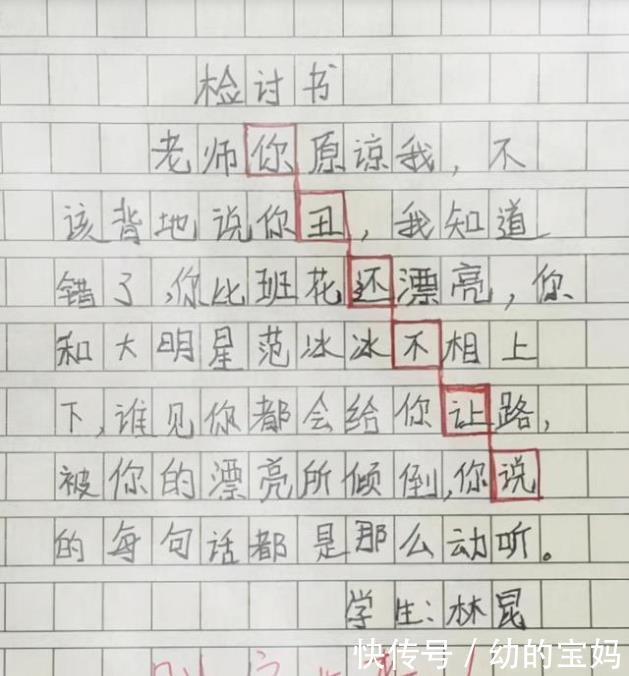 检讨书
老师你原谅我，不
该背地说你丑，我知道
错了，你比班花还漂亮，你
和大明星范冰冰不相上
下，谁见你都会给你让路，
被你的漂亮所倾倒，你说
的每句话都是那么动听。
学生：林昆
快传号/幼的宝妈